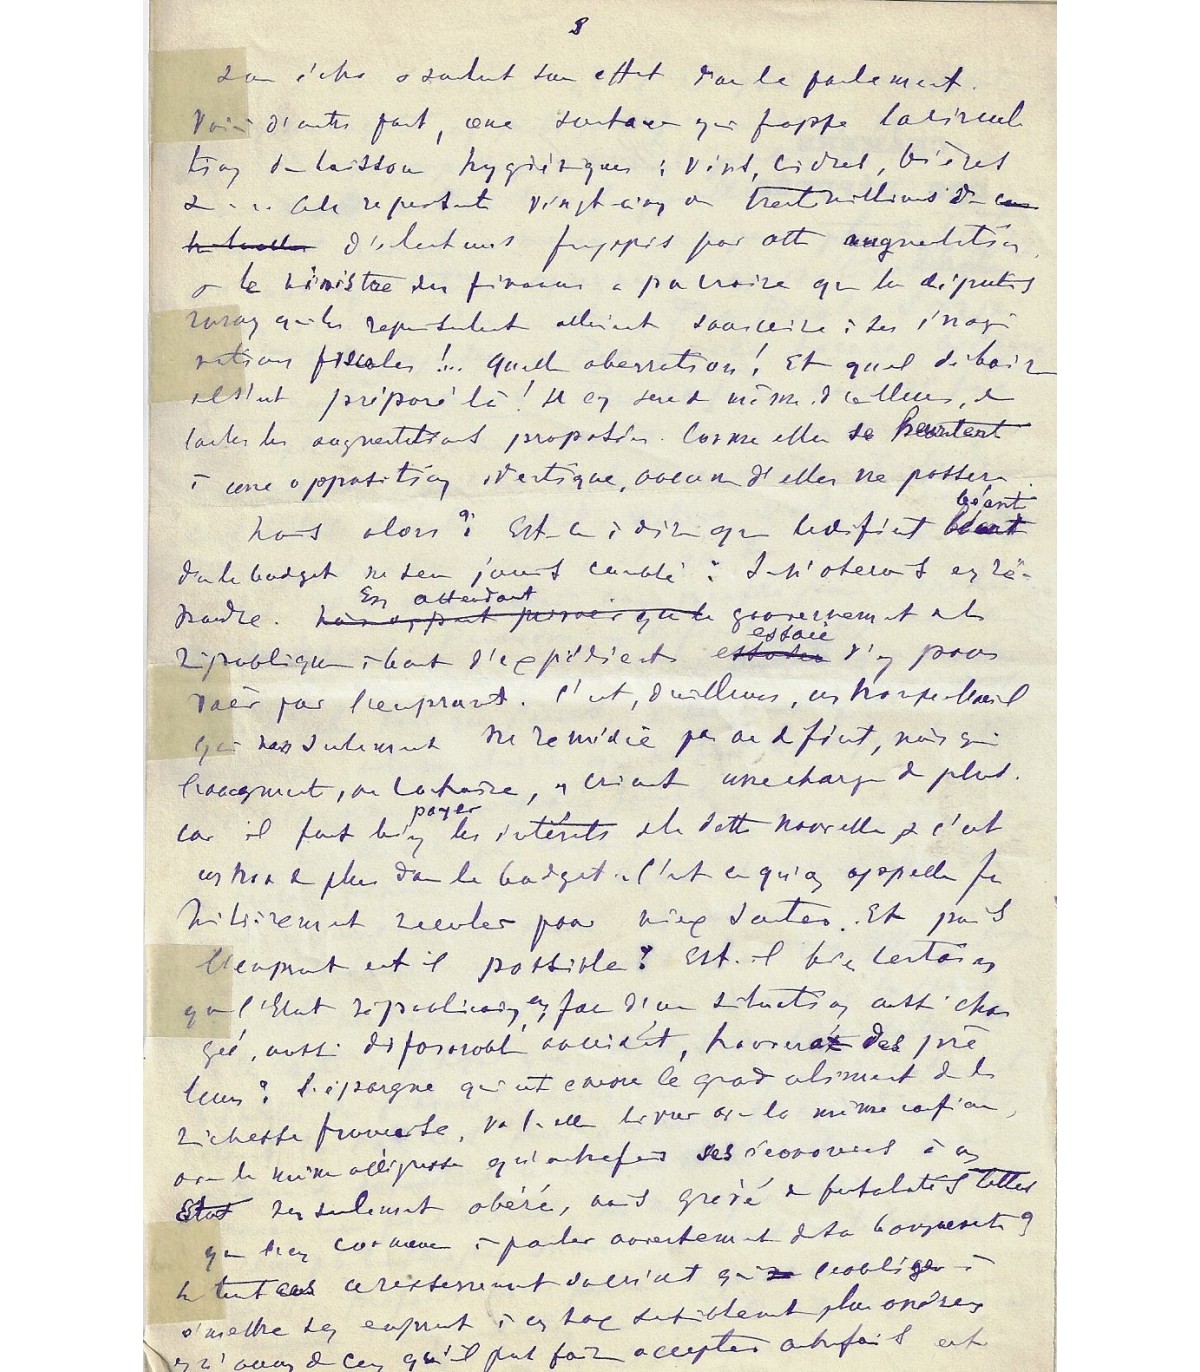 8
son écho et surtout son effet dans le parlement.
Voici d'autre part, une surtaxe qui frappe la circula
tion des boissons hygiéniques : Vins, Cidres, bières
Cela représente vingt-cinq ou trente millions de
d'électeurs frappés par cette augmentation,
et le ministre des finances a pu croire que les députés
ruraux qui les représentent allaient souscrire à ses imagi
nations fiscales !... Quelle aberration ! Et quel déboire
il s'est préparé là ! Il en sera de même, d'ailleurs, de
toutes les augmentations proposées. Comme elles se heurtent
à une opposition identique, aucune d'elles ne passera.
Mais alors ? Est-ce à dire que le déficit béant
dans le budget ne sera jamais comblé ? Je n'oserais en ré-
pondre. En attendant le gouvernement de la
république à bout d'expédients essaie d'y pour
voir par l'emprunt. C'est, d'ailleurs, un trompe-l'œil
qui non seulement ne remédie pas au déficit, mais qui
l'augmente, au contraire, en créant une charge de plus.
car il faut bien payer les intérêts de la dette nouvelle, et c'est
un trou de plus dans le budget. C'est ce qu'on appelle fa
milièrement reculer pour mieux sauter. Et puis
l'emprunt est-il possible ? Est-il bien certain
que l'Etat républicain, en face d'une situation aussi char
gée, aussi défavorable vraiment, trouverait des prê
teurs ? L'épargne qui est encore le grand aliment de la
richesse française, va-t-elle livrer avec la même confiance,
avec la même allégresse qu'autrefois ses économies à un
Etat non seulement obéré, mais grevé de fatalités telles
que l'on commence à parler ouvertement de sa banqueroute ?
En tout cas ce resserrement qui l'oblige à
émettre son emprunt à un taux sensiblement plus onéreux
qu'il put faire accepter autrefois est